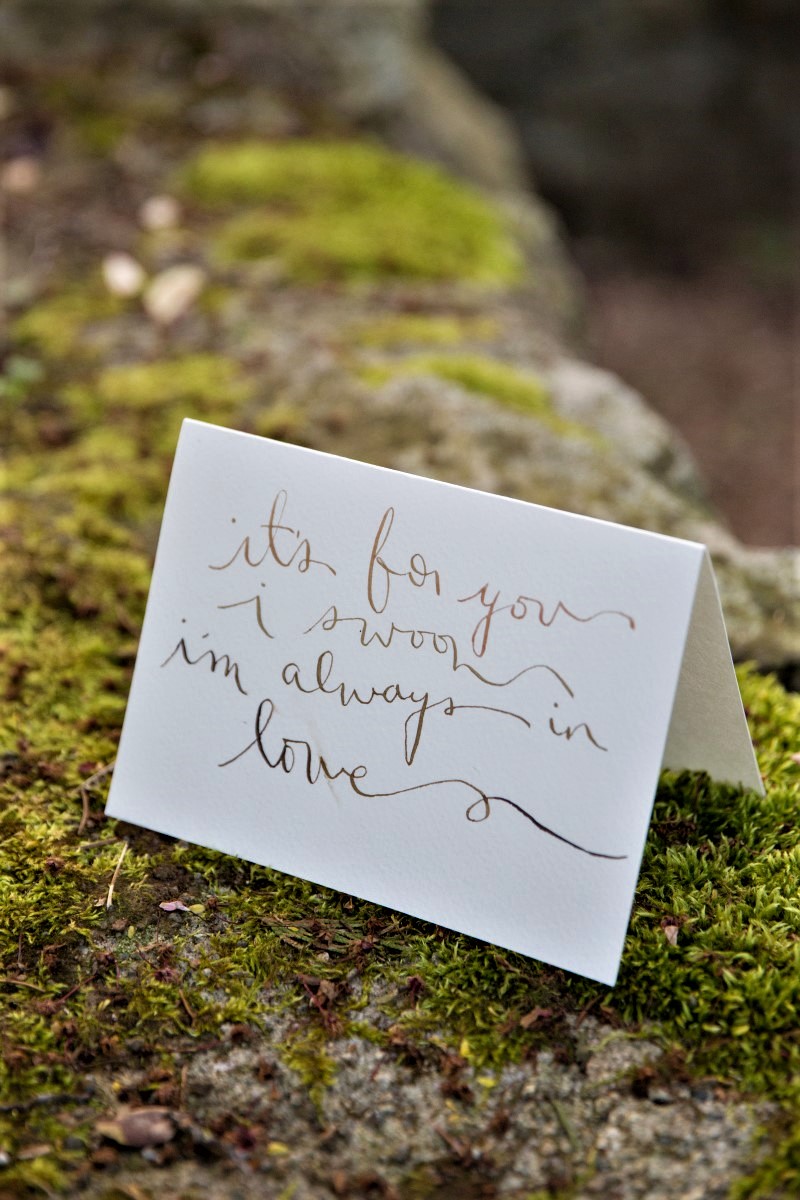 it's for you
i swoon
i'm always in
love